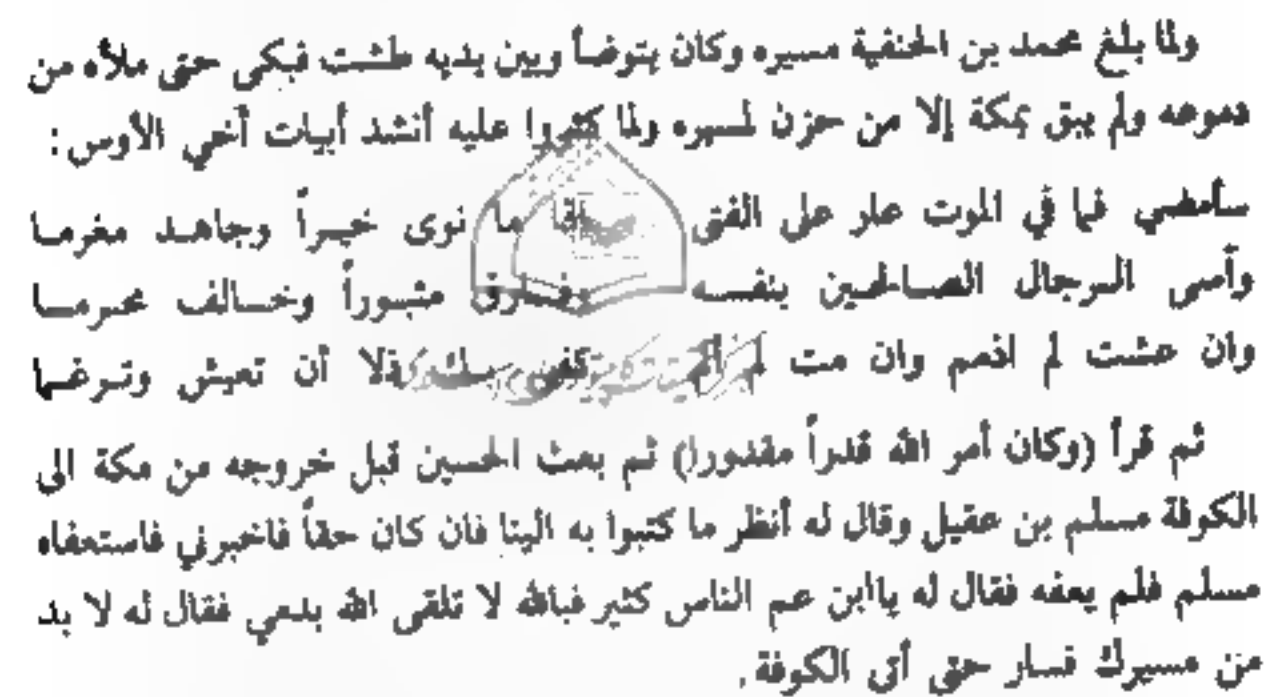 ولما بلغ محمد بن الحنفية مسيره وكان يتوضأ وبين يديه طشت فبكى حتى ملأه من
دموعه ولم يبق بمكة إلا من حزن لمسيره ولما كثروا عليه أنشد أبيات أخي الأوس :
سأمضي فما في الموت عار على الفتى ما نوى خيراً وجاهد مغرما
وآسى الرجال الصالحين بنفسه وفارق مثبوراً وخالف محرما
وان عشت لم اذمم وان مت لم كفى بك ذلا أن تعيش وترغما
ثم قرأ (وكان أمر الله قدراً مقدورا) ثم بعث الحسين قبل خروجه من مكة الى
الكوفة مسلم بن عقيل وقال له أنظر ما كتبوا به الينا فان كان حقاً فاخبرني فاستعفاه
مسلم فلم يعفه فقال له ياابن عم الناس كثير فبالله لا تلقى الله بدمي فقال له لا بد
من مسيرك فسار حتى أتى الكوفة .